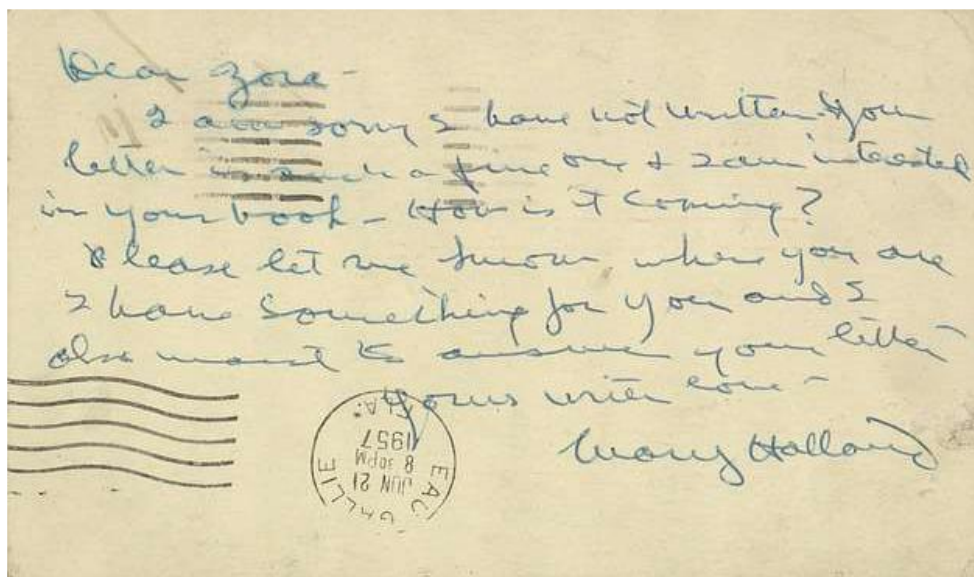 Dear Zora -
I am sorry I have not written. Your
letter is such a fine one & I am interested
in your book - How is it coming?
Please let me know where you are
I have something for you and I
also want to answer your letter
Yours with love -
Mary Holland
EAU GALLIE
FLA.
JUN 21
8 30 PM
1957